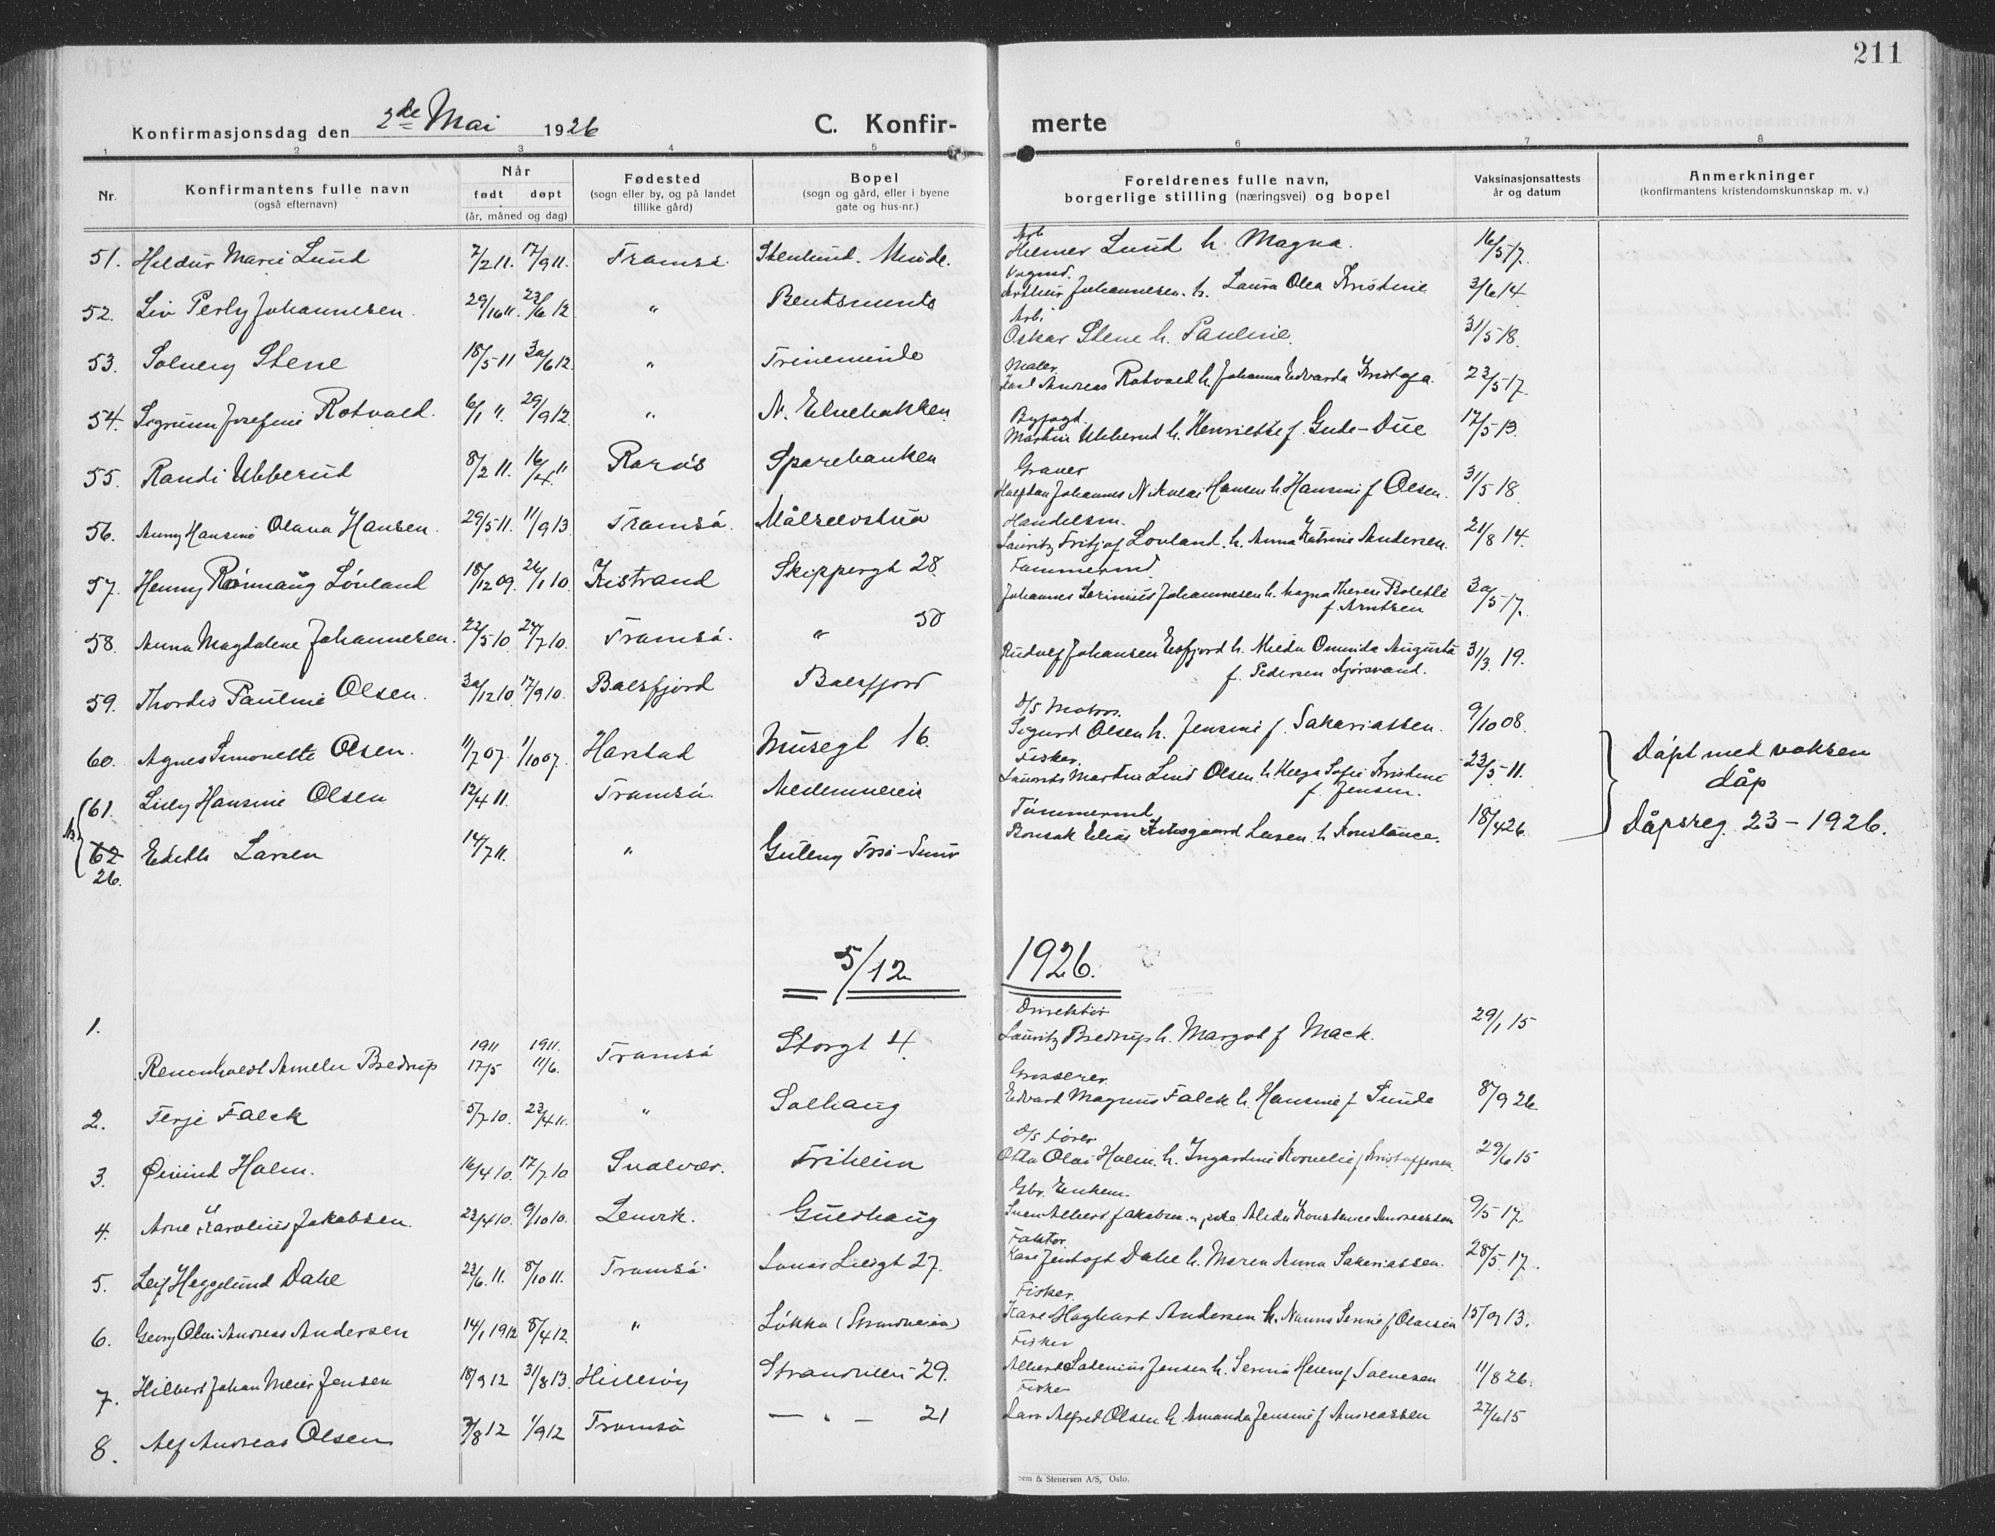 211
Konfirmasjonsdag den 2de Mai 1926 C. Konfir- merte
1 2 3 4 5 6 7 8
Nr. Konfirmantens fulle navn (også efternavn) Når født døpt (år, måned og dag) Fødested (sogn eller by, og på landet tillike gård) Bopel (sogn og gård, eller i byene gate og hus-nr.) Foreldrenes fulle navn, borgerlige stilling (næringsvei) og bopel Vaksinasjonsattests år og datum Anmerkninger (konfirmantens kristendomskunnskap m. v.)
51. Hildur Marie Lund 7/2 11. 17/9 11. Tromsø Stenlund. Minde. Arb. Hilmer Lund h. Magna. 16/5 17.
52. Liv Perly Johannesen. 29/10 11. 23/6 12 " Bentsminde Arthur Johannesen. h. Laura Olea Kristine 3/6 14.
53. Solveig Stene 18/5 11 30/6 12. " Trineminde Arb. Oskar Stene h. Pauline. 31/5 18.
54. Sigrunn Josefine Rotvold. 6/1 11. 29/9 12. " N. Elvebakken Maler Karl Andreas Rotvold h. Johanna Edvarda 23/5 17.
55. Randi Ubberud 8/2 11. 16/4 11 Røros Sparebanken Byfogd. Martin Ubberud h. Henriette f. Gude-Due 17/5 13.
56. Anny Hansine Olava Hansen. 29/5 11. 11/9 13 Tromsø. Målselvstua Graver Halfdan Johannes Nikolai Hansen h. Hansine f. Olsen. 31/5 18.
57. Henny Rønnaug Lønland 18/12 09. 26/1 10. Kistrand Skippergt 28. Handelsm. Lauritz Fritjof Lonland. h. Anna Katrine Andersen. 21/8 14.
58. Anna Magdalene Johannesen. 22/5 10 24/7 10. Tromsø. " 50 Tømmermd. Johannes Johannesen h. Magna Therese Bolette f. Arntsen 30/5 17.
59. Thordis Pauline Olsen. 30/12 10. 17/9 10. Balsfjord Balsfjord Rudolf Johansen h. Milda Augusta f. Pedersen 31/3 19.
60. Agnes Simonette Olsen. 11/7 07. 1/10 07. Harstad Musegt 16. D/S Matros. Sigurd Olsen h. Jensine f. Sakariassen. 9/10 08.
61. Lilly Hansine Olsen 12/4 11. Tromsø. Fisker. Martin Olsen. h. Helga Sofie Kristine f. Jensen. 23/5 11. Døpt med voksen dåp
62 26. Edith Larsen 14/7 11. " Tømmermd. Elias Larsen. h. Konstance. 18/4 26. Dåpsreg. 23 - 1926.
5/12 1926.
1. Amelin Bredrup 1911 17/5 1911. 11/6. Tromsø Storgt 4. Direktør Lauritz Bredrup h. Margot f. Mack. 29/1 15
2. Terje Falck 5/7 10. 23/4 11. " Solhaug Grosserer. Edvard Magnus Falck h. Hansine f. Sunde 8/9 26.
3. Øivind Holm. 16/4 10. 17/7 10 Svolvær. Friheim D/S fører Otto Olai Holm. h. Ingardine Kornelie f. Kristoffersen. 29/6 15
4. Arne Karolius Jakobsen. 23/4 10. 9/10 10. Lenvik. Gulshaug Gbr. Enkem. Sven Albert Jakobsen. Alida Konstance Andreassen 9/5 17.
5. Leif Heggelund Dahl 23/6. 11. 8/10 11. Tromsø. Jonas Liesgt 27. Faktor. Kare Jentoft Dahl h. Maren Anna Sakariassen. 28/5. 17.
6. Georg Olai Andreas Andersen 14/1 1912 8/4 12. " Løkka (Strandveien) Fisker. Kare Hagbart Andersen h. f. Olaisen 15/9 13.
7. Hilbert Johan Meier Jensen 18/9 12 31/8 13. Hillesøy Strandveien 29. Fisker Albert Jensen h. Serina Helene f. Solnesen 11/8 26.
8. Alf Andreas Olsen 3/8 12 1/9 12 Tromsø — " — 21 Fisker Lars Alfred Olsen h. Amanda Jensine f. Andreassen 27/6 15
Sem & Stenersen A/S, Oslo.